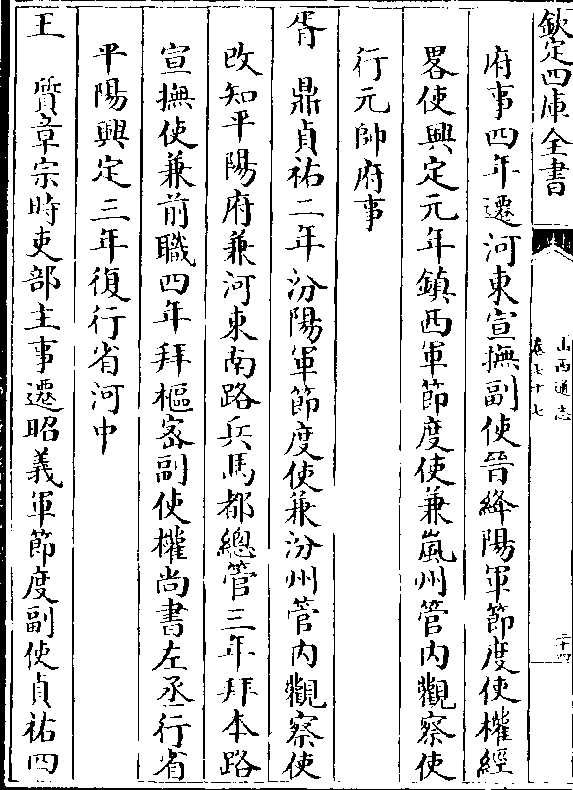 欽定四庫全書
山西通志
卷七十七
二十四
府事四年遷河東宣撫副使晉絳陽軍節度使權經
畧使興定元年鎮西軍節度使兼嵐州管内觀察使
行元帥府事
胥　鼎貞祐二年汾陽軍節度使兼汾州管内觀察使
改知平陽府兼河東南路兵馬都總管三年拜本路
宣撫使兼前職四年拜樞密副使權尚書左丞行省
平陽興定三年復行省河中
王　質章宗時吏部主事遷昭義軍節度副使貞祐四